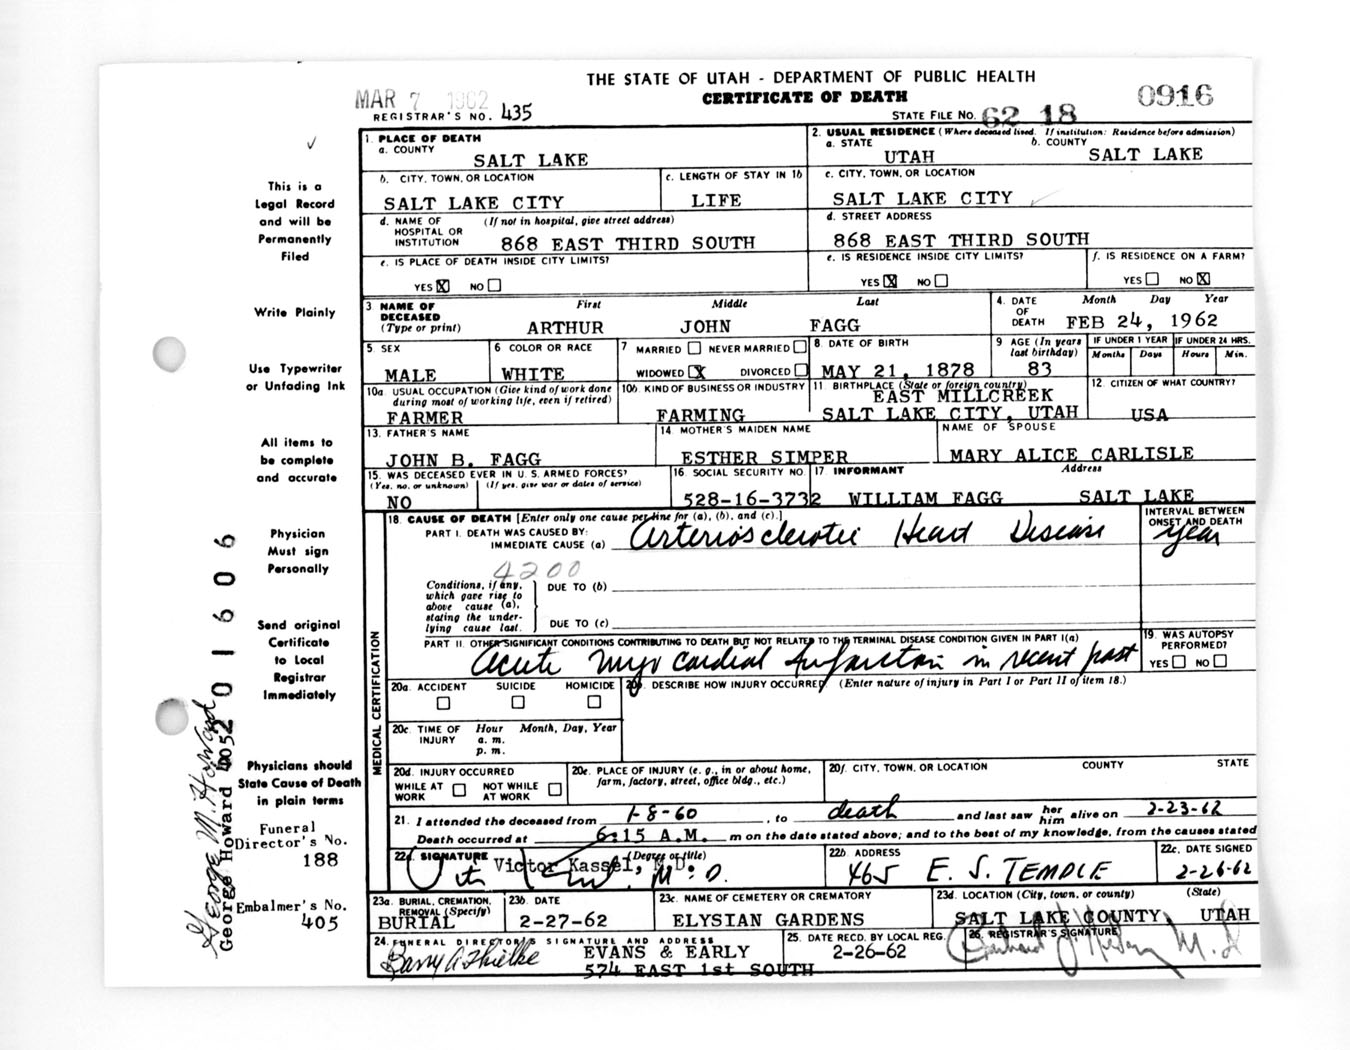 THE STATE OF UTAH - DEPARTMENT OF PUBLIC HEALTH
MAR 7 1962 CERTIFICATE OF DEATH 0916
REGISTRAR'S NO. 435 STATE FILE NO. 62 18
1. PLACE OF DEATH
a. COUNTY
SALT LAKE
2. USUAL RESIDENCE (Where deceased lived. If institution: Residence before admission)
a. STATE b. COUNTY
UTAH SALT LAKE
b. CITY, TOWN, OR LOCATION
SALT LAKE CITY
c. LENGTH OF STAY IN 1b
LIFE
c. CITY, TOWN, OR LOCATION
SALT LAKE CITY
d. NAME OF HOSPITAL OR INSTITUTION (If not in hospital, give street address)
868 EAST THIRD SOUTH
d. STREET ADDRESS
868 EAST THIRD SOUTH
e. IS PLACE OF DEATH INSIDE CITY LIMITS?
YES X NO
e. IS RESIDENCE INSIDE CITY LIMITS?
YES X NO
f. IS RESIDENCE ON A FARM?
YES NO X
3 NAME OF DECEASED (Type or print)
First Middle Last
ARTHUR JOHN FAGG
4. DATE OF DEATH
Month Day Year
FEB 24, 1962
5. SEX
MALE
6 COLOR OR RACE
WHITE
7 MARRIED NEVER MARRIED
WIDOWED X DIVORCED
8 DATE OF BIRTH
MAY 21, 1878
9 AGE (In years last birthday)
83
IF UNDER 1 YEAR IF UNDER 24 HRS.
Months Days Hours Min.
10a. USUAL OCCUPATION (Give kind of work done during most of working life, even if retired)
FARMER
10b. KIND OF BUSINESS OR INDUSTRY
FARMING
11 BIRTHPLACE (State or foreign country)
EAST MILLCREEK
SALT LAKE CITY, UTAH
12 CITIZEN OF WHAT COUNTRY?
USA
13. FATHER'S NAME
JOHN B. FAGG
14 MOTHER'S MAIDEN NAME
ESTHER SIMPER
NAME OF SPOUSE
MARY ALICE CARLISLE
15. WAS DECEASED EVER IN U. S. ARMED FORCES?
(Yes, no, or unknown) (If yes, give war or dates of service)
NO
16 SOCIAL SECURITY NO.
528-16-3732
17 INFORMANT Address
WILLIAM FAGG SALT LAKE
18. CAUSE OF DEATH [Enter only one cause per line for (a), (b), and (c).]
PART I. DEATH WAS CAUSED BY:
IMMEDIATE CAUSE (a) Arteriosclerotic Heart Disease
INTERVAL BETWEEN ONSET AND DEATH
year
4200
Conditions, if any, which gave rise to above cause (a), stating the underlying cause last.
DUE TO (b)
DUE TO (c)
PART II. OTHER SIGNIFICANT CONDITIONS CONTRIBUTING TO DEATH BUT NOT RELATED TO THE TERMINAL DISEASE CONDITION GIVEN IN PART I(a)
Acute myocardial infarction in recent past
19. WAS AUTOPSY PERFORMED?
YES NO
MEDICAL CERTIFICATION
20a. ACCIDENT SUICIDE HOMICIDE
20b. DESCRIBE HOW INJURY OCCURRED (Enter nature of injury in Part I or Part II of item 18.)
20c. TIME OF INJURY Hour Month, Day, Year
a. m.
p. m.
20d. INJURY OCCURRED
WHILE AT WORK NOT WHILE AT WORK
20e. PLACE OF INJURY (e. g., in or about home, farm, factory, street, office bldg., etc.)
20f. CITY, TOWN, OR LOCATION COUNTY STATE
21. I attended the deceased from 1-8-60, to death and last saw her him alive on 2-23-62
Death occurred at 6:15 A.M. m on the date stated above; and to the best of my knowledge, from the causes stated
22a. SIGNATURE (Degree or title)
Victor Kassel, M.D.
M.D.
22b. ADDRESS
465 E. S. TEMPLE
22c. DATE SIGNED
2-26-62
23a. BURIAL, CREMATION, REMOVAL (Specify)
BURIAL
23b. DATE
2-27-62
23c. NAME OF CEMETERY OR CREMATORY
ELYSIAN GARDENS
23d. LOCATION (City, town, or county) (State)
SALT LAKE COUNTY, UTAH
24. FUNERAL DIRECTOR'S SIGNATURE AND ADDRESS
EVANS & EARLY
574 EAST 1st SOUTH
25. DATE RECD. BY LOCAL REG.
2-26-62
26. REGISTRAR'S SIGNATURE
M.D.
This is a
Legal Record
and will be
Permanently
Filed
Write Plainly
Use Typewriter
or Unfading Ink
All items to
be complete
and accurate
Physician
Must sign
Personally
Send original
Certificate
to Local
Registrar
Immediately
Physicians should
State Cause of Death
in plain terms
Funeral
Director's No.
188
Embalmer's No.
405
George M. Howard
George Howard 4052
01606